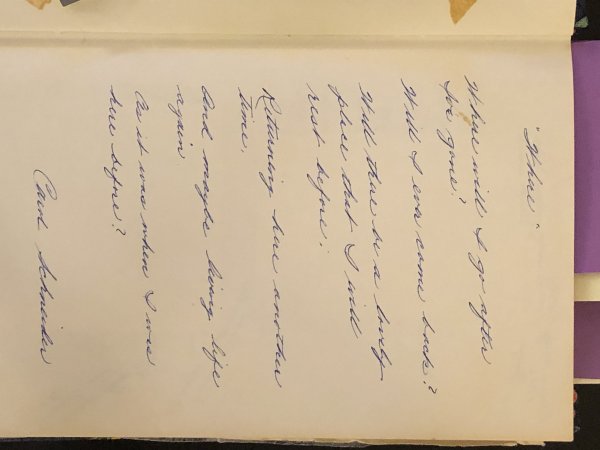 "Where"
Where will I go after
I've gone?
Will I ever come back?
Will there be a lovely
place that I will
rest before;
Returning here another
time,
And maybe living life
again
As it was when I was
here before?
Carol Schneider